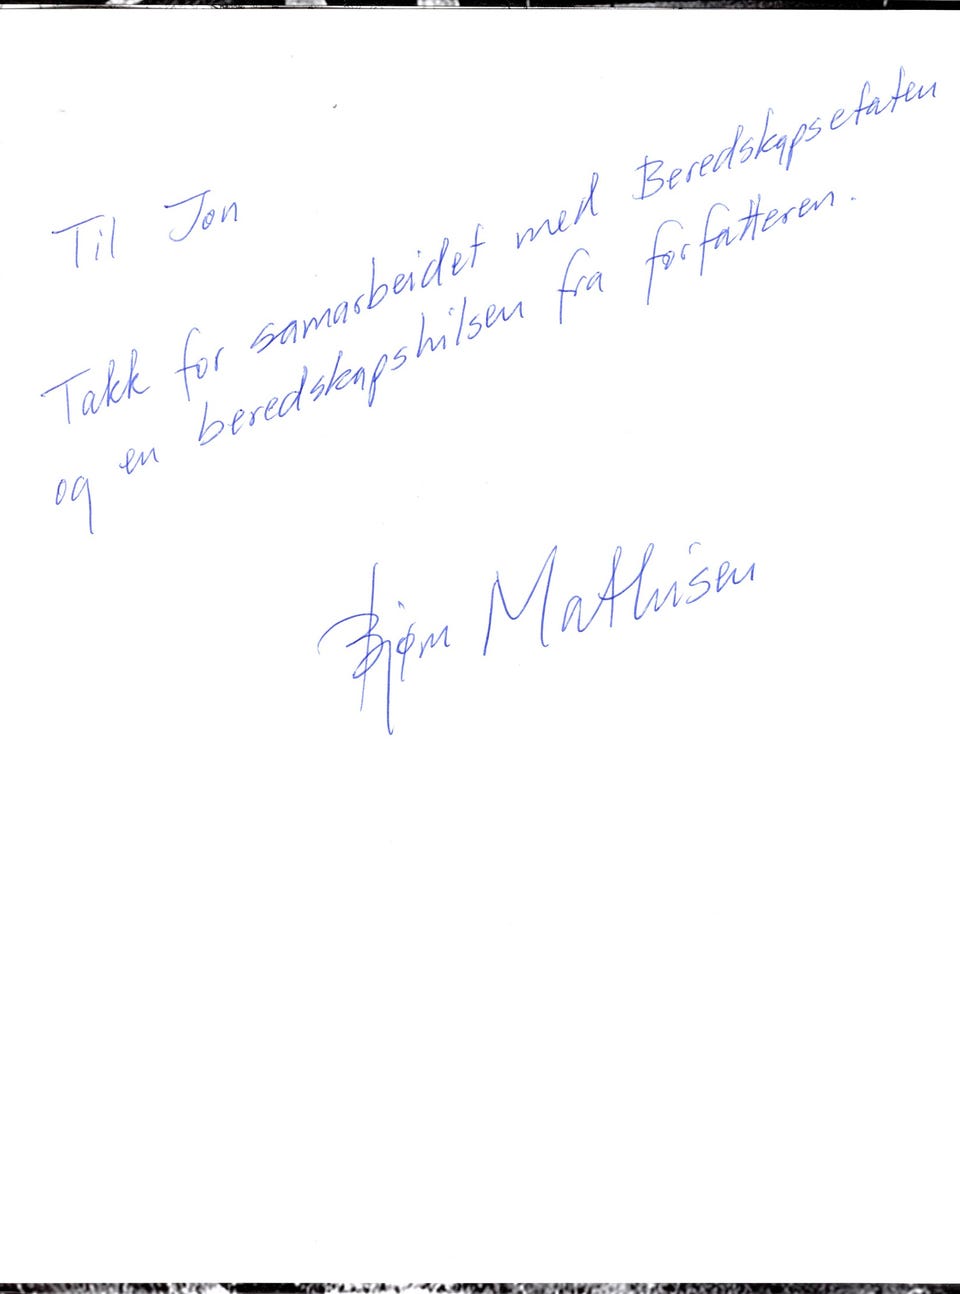 Til Jon
Takk for samarbeidet med Beredskapsetaten
og en beredskapshilsen fra forfatteren.
Bjørn Mathisen